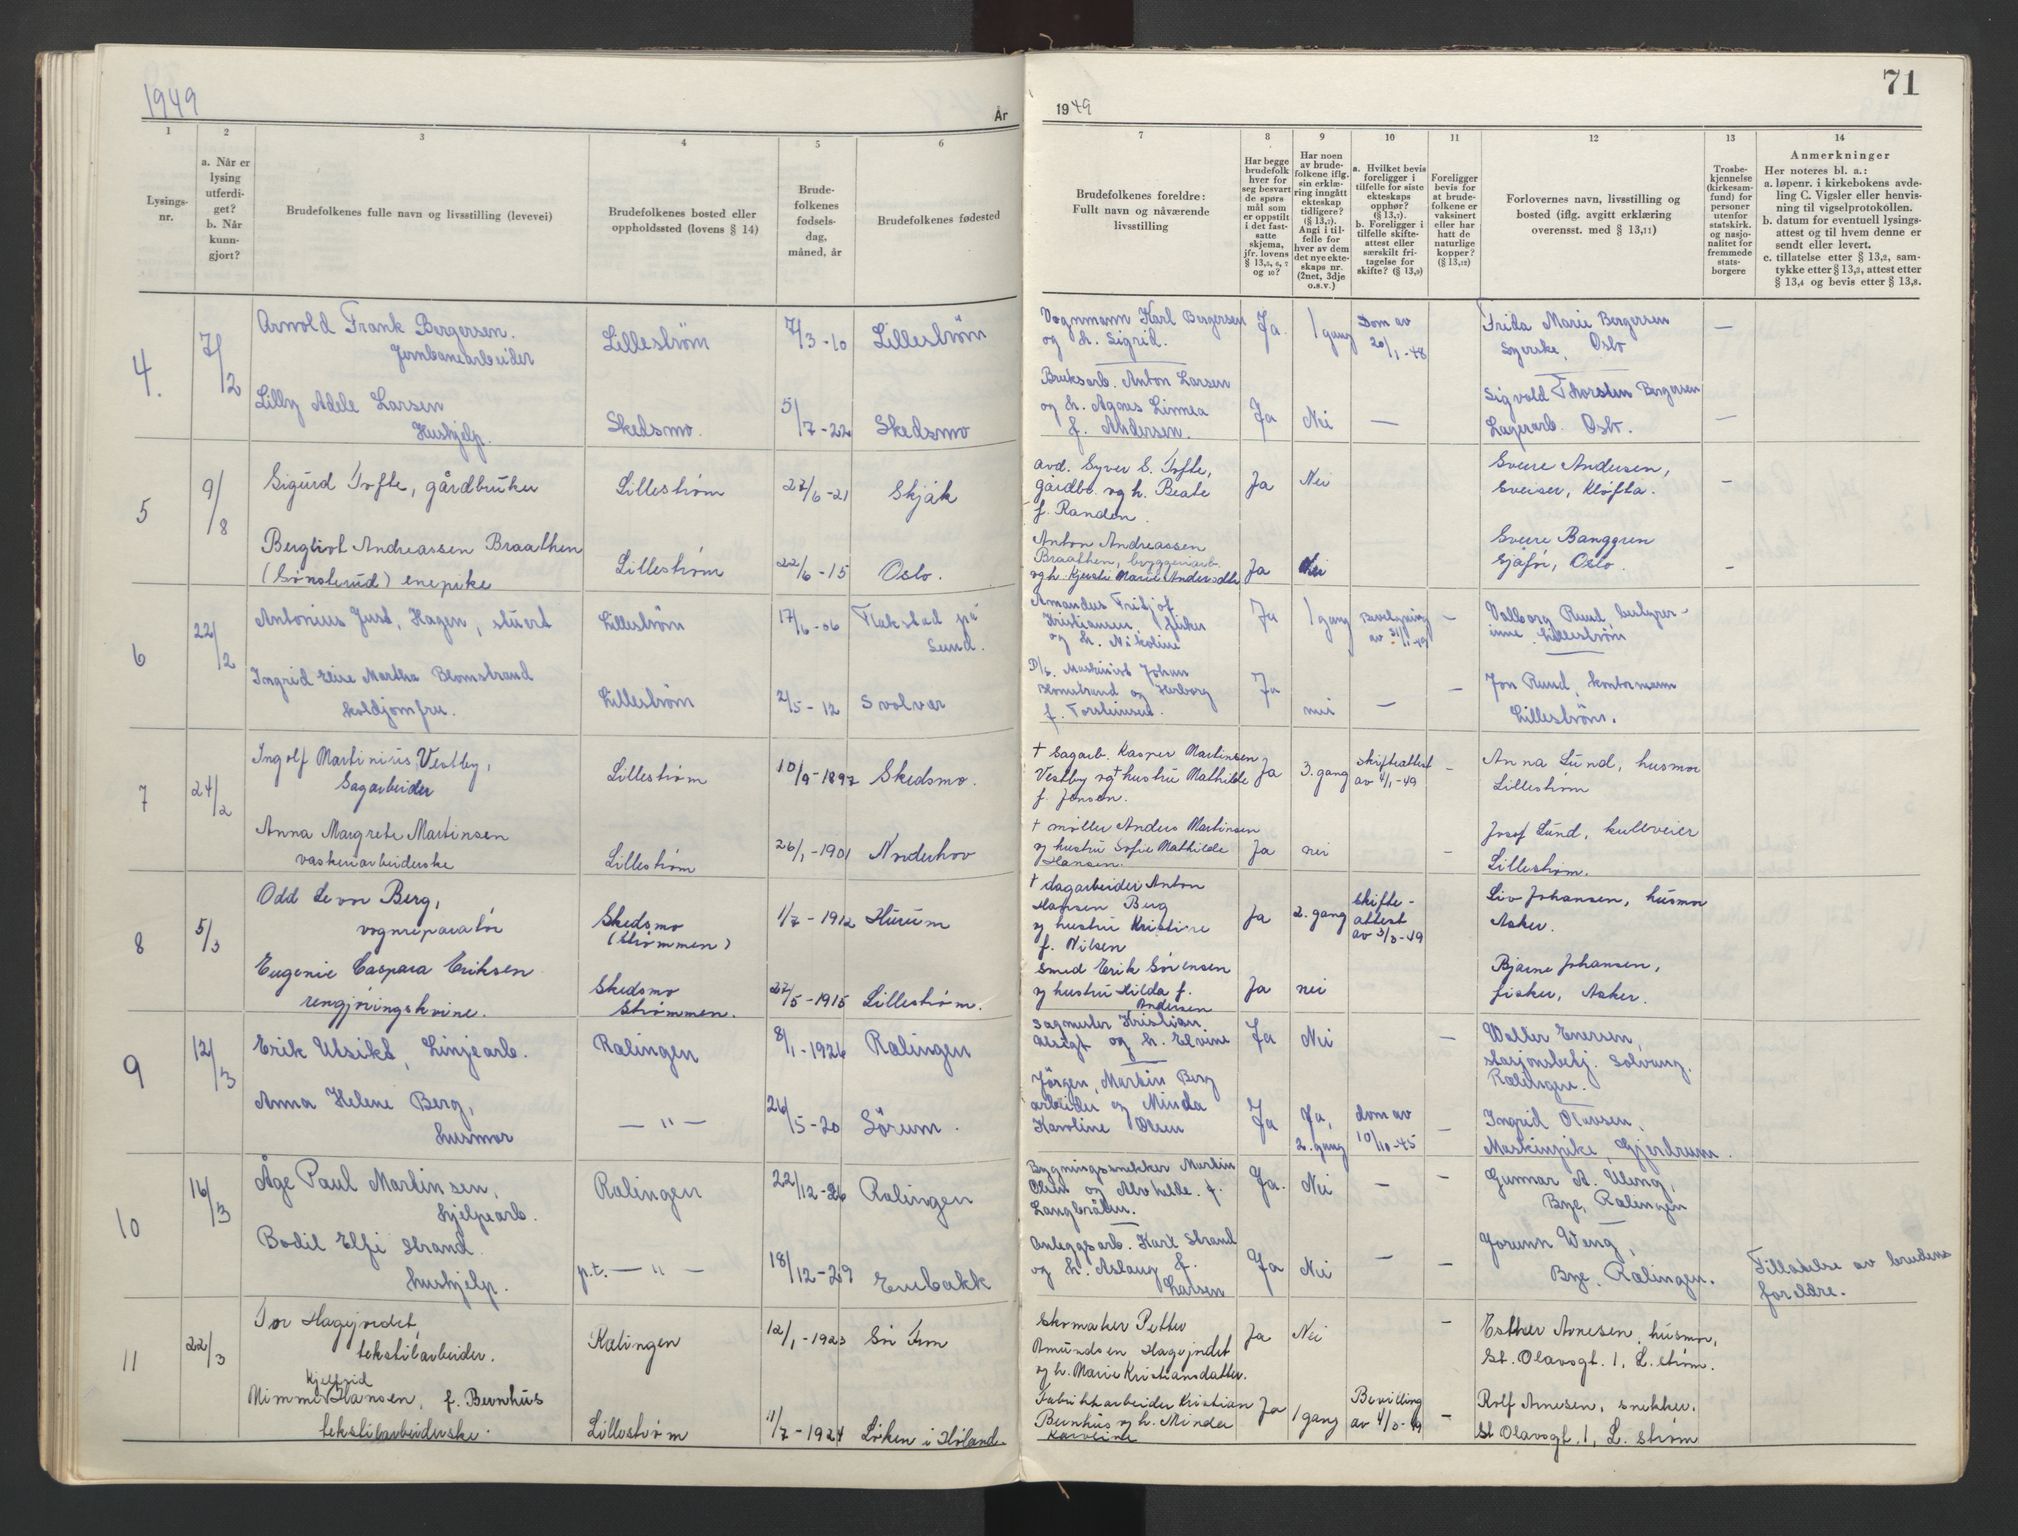 1949
År
1
2
3
4
5
6
Lysings-
nr.
a. Når er
lysing
utferdi-
get?
b. Når
kunn-
gjort?
Brudefolkenes fulle navn og livsstilling (levevei)
Brudefolkenes bosted eller
oppholdssted (lovens § 14)
Brude-
folkenes
fødsels-
dag,
måned, år
Brudefolkenes fødested
4.
7/2
Arnold Frank Bergersen.
Jernbanearbeider
Lilleström
7/3-10
Lilleström
Lilly Adele Larsen
Hushjelp.
Skedsmo.
5/7-22
Skedsmo
5
9/8
Sigurd Tofte, gårdbruker
Lillestrøm
27/6-21
Skjåk
Bergliot Andreassen Braathen
(Sønsterud) enepike
Lillestrøm
22/6-15
Oslo.
6
22/2
Antonius Just, Hagen, stuert
Lilleström
17/6-06
Flakstad på
Sund.
Ingrid Elise Martha Blomstrand
koldjomfru.
Lilleström
2/5-12
Svolvær
7
24/2
Ingolf Martinius Vestby,
Sagarbeider
Lillestrøm
10/9-1897
Skedsmo.
Anna Margrete Martinsen
vaskeriarbeiderske
Lillestrøm
26/1-1901
Norderhov
8
5/3
Odd Levor Berg,
vognreparatør
Skedsmo
(Strømmen)
1/7-1912
Hurum
Eugenie Caspara Eriksen
rengjøringskvine.
Skedsmo
Strømmen.
27/5-1915
Lillestrøm.
9
12/3
Erik Utsikt, Linjearb.
Rælingen
8/1-1926
Rælingen
Anna Helene Berg,
husmor
— " —
26/5-20
Sörum.
10
16/3
Åge Paul Martinsen,
hjelpearb.
Rælingen
22/12-26
Rælingen
Bodil Elfi Strand.
hushjelp.
p.t. — " —
18/12-29
Enebakk
11
22/3
Tor Hagejordet,
tekstilarbeider.
Rælingen
12/1-1923
Sør Fron
Kjellfrid
Mimmi Hansen, f. Bernhus
tekstilarbeiderske.
Lillestrøm
11/7-1924
Løken i Høland
71
1949
7
8
9
10
11
12
13
14
Brudefolkenes foreldre:
Fullt navn og nåværende
livsstilling
Har begge
brudefolk
hver for
seg besvart
de spørs
mål som
er oppstilt
i det fast-
satte
skjema,
jfr. lovens
§ 13,5, 6, 7
og 10?
Har noen
av brude-
folkene iflg.
sin erklæ-
ring inngått
ekteskap
tidligere?
(§ 13,7).
Angi i til-
felle for
hver av dem
det nye ekte-
skaps nr.
(2net, 3dje
o.s.v.)
a. Hvilket bevis
foreligger i
tilfelle for siste
ekteskaps
opphør?
(§ 13,7).
b. Foreligger i
tilfelle skifte-
attest eller
særskilt fri-
tagelse for
skifte? (§ 13,9)
Foreligger
bevis for
at brude-
folkene er
vaksinert
eller har
hatt de
naturlige
kopper?
(§ 13,12)
Forlovernes navn, livsstilling og
bosted (iflg. avgitt erklæring
overensst. med § 13,11)
Trosbe-
kjennelse
(kirkesam-
fund) for
personer
utenfor
statskirk.
og nasjo-
nalitet for
fremmede
stats-
borgere
Anmerkninger
Her noteres bl. a.:
a. løpenr. i kirkebokens avde-
ling C. Vigsler eller henvis-
ning til vigselprotokollen.
b. datum for eventuell lysings-
attest og til hvem denne er
sendt eller levert.
c. tillatelse etter § 13,2, sam-
tykke etter § 13,3, attest etter
§ 13,4 og bevis etter § 13,8.
Vognmann Karl Bergersen
og h. Sigrid.
Ja.
1 gang
Dom av
20/1-48
Frida Marie Bergersen
Syerske, Oslo
—
Bruksarb. Anton Larsen
og h. Agnes Linnea
f. Andersen.
Ja
Nei
—
Sigvold Thorsten Bergersen
Lagerarb. Oslo.
—
avd. Syver S. Tofte,
gårdbr. og h. Beate
f. Randen.
Ja
Nei
Sverre Andersen,
Sveiser, Kløfta.
–
Anton Andreassen
Braathen, byggeriarb.
og h. Kjersti Marie Andersdtr
Ja
Nei
Sverre Banggren
Sjåfør, Oslo.
–
Amandus Fritjof
Kristiansen, fisker
og h. Nikoline
Ja
1 gang
Bevilgning
av 31/1-49
–
Valborg Ruud, bestyrer-
inne, Lilleström
D/s. Maskinist Johan
Blomstrand og Herborg
f. Torsteinsen.
Ja
nei
—
–
Jon Ruud, kontormann
Lilleström.
+ Sagarb. Kasper Martinsen
Vestby og + hustru Mathilde
f. Jensen.
Ja
3. gang
Skifteattest
av 4/1-49
–
Anna Lund, husmor
Lillestrøm
+ møller Anders Martinsen
og hustru Sofie Mathilde
Hansen.
Ja
nei
–
Josef Lund, kullveier
Lillestrøm.
+ dagarbeider Anton
Hansen Berg
og hustru Kristine
f. Nilsen
Ja
2. gang
Skifte-
attest
av 3/3-49
Liv Johansen, husmor
Asker.
Smed Erik Sørensen
og hustru Hilda f.
Andersen
Ja
nei
Bjarne Johansen,
fisker, Asker.
Sagmester Kristian
Utsigt og h. Elvine
Ja
Nei
–
Walter Enersen,
stasjonsbetj. Solvang,
Rælingen.
Jörgen, Martin Berg
arbeider og Minda
Karoline Olsen
Ja
Ja,
2. gang
dom av
10/10-45
–
Ingrid Olavsen,
Maskinpike, Gjerdrum.
Bygningssnekker Martin
Olsen og Alvhilde f.
Langbråten.
Ja.
Nei
–
–
Gunnar A. Uleng,
Bye, Rælingen
Anleggsarb. Karl Strand
og h. Aslaug f.
Larsen
Ja
Nei
–
–
Jorunn Weng,
Bye, Rælingen.
Tillatelse av brudens
foreldre.
Skomaker Petter
Amundsen Hagejordet
og h. Marie Kristiansdatter.
Ja
Nei
–
Esther Arnesen, husmor,
St. Olavsgt. 1, L. strøm.
Fabrikkarbeider Kristian
Bernhus og h. Minda
Karoline
Ja
1 gang
Bevilling
av 4/3-49
–
Rolf Arnesen, snekker.
St Olavsgt. 1, L. strøm